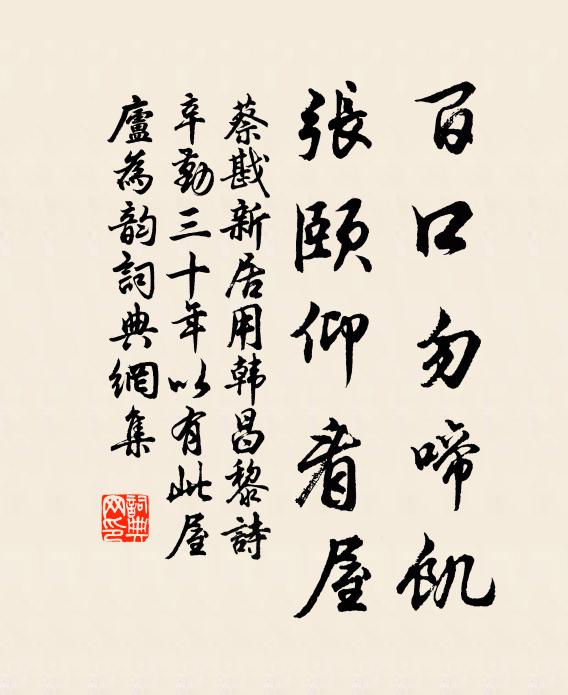 百口勿啼飢
張頤仰看屋
蔡戡新居用韩昌黎詩
辛勤三十年以有此屋
廬為韵詞典網集
詞典网印